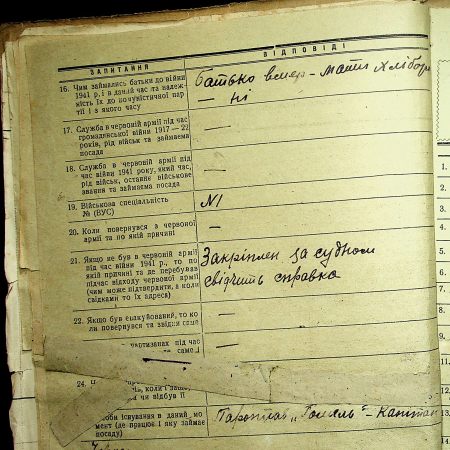 ЗАПИТАННЯ
ВІДПОВІДІ
16. Чим займались батьки до війни
1941 р. і в даний час та належ-
ність їх до комуністичної пар-
тії і з якого часу
Батько вмер - Мати хлібороб
— ні
17. Служба в червоній армії під час
громадянської війни 1917—22
років, рід військ та займаема
посада
—
18. Служба в червоній армії під
час війни 1941 року, який час,
рід військ, останнє військове
звання та займаема посада
—
19. Військова спеціальність
№ (ВУС)
№1
20. Коли повернувся з червоної
армії та по якій причині
—
21. Якщо не був в червоній армії
під час війни 1941 р., то по
якій причині та де перебував
підчас відходу червоної армії
(чим може підтвердити, а коли
свідками то їх адреса)
Закріплен за судном
свідчить справка
22. Якщо був евакуйований, то ко-
ли повернувся та звідки саме
—
партизанах під час
саме
—
24.
коли і за що
чи відбув її
—
оби існування в даний мо-
мент (де працює і яку займає
посаду)
Пароплав „Гомель" - Капітан
1.
2.
3.
4.
5.
6.
7.
8.
9.
10.
11.
12.
13.
14